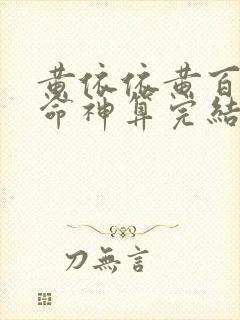 黄依依黄百
命神算完結
刀無言